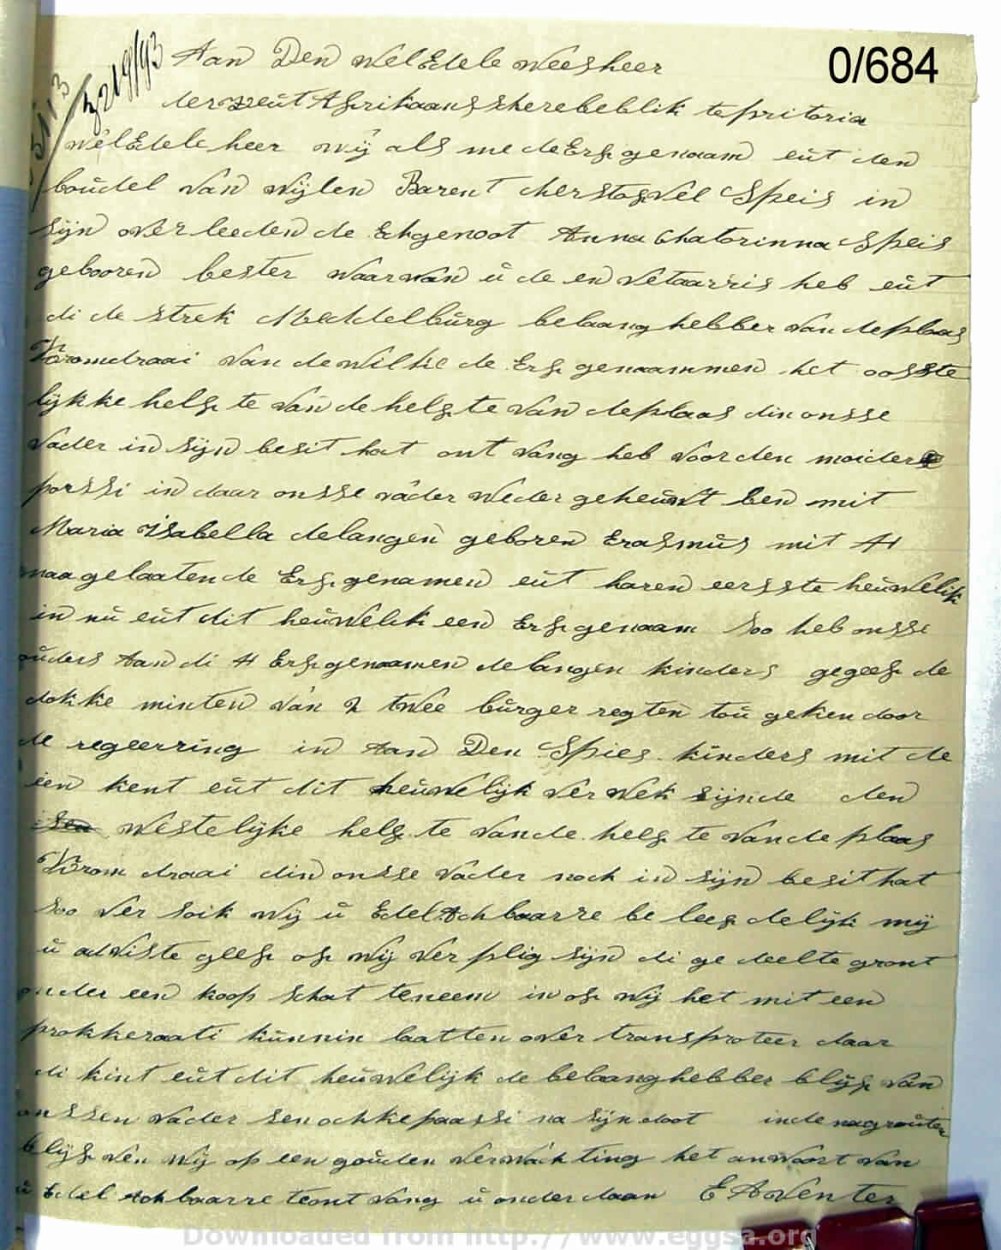 Aan Den WelEdele Weesheer
0/684
der zeut Afrikaans sherebeblik te pritoria
WelEdele heer wÿ als mede Erfgenaam eut den
boudel van wijlen Barent cherstofvel Speis in
sijn overleeden de Echgenoot Anna Chatorinna Speis
gebooren bester waarvan ů de en vetaarris heb eut
di de strek Meddelburg belaanghebber van deplaas
Kromdraai van de Wilhe de Erfgenaammen het oosste
lijkke helfte van de helfte van deplaas din onsse
vader in sijn besit hat ont vang heb voor den moider
porssi in daar onsse vader weder geheuwt ben mit
Maria Isabella delangen geboren Erasmus mit 4
naagelaatende Erfgenamen eut haren eersste heuwelik
in nu eut dit heuwelik een Erfgenaam Soo heb onsse
ouders Aan di 4 Erfgenaamen delangen kinders gegeef de
dokke minten van 2 twee burger regten tou geken door
de regeerring in Aan Den Spies kinders mit de
een kent eut dit heuwelijk ver wek sijnde den
westelijke helfte vande helfte vande plaas
Krom draai din onsse vader noch in sijn besit hat
Soo ver soik wij u EdelAchbaarre be leefdelijk mij
u adviste geef of wij ver plig sijn di gedeelte gront
onder een koop schat teneem in of wij het mit een
prokkeraati kunnin laatten over transporteer daar
di kint eut dit heuwelijk de belaanghebber blijf van
onssen vader sen ochkepaassi na sijn doot inde nagrouten
blijf ven wij op een gouden verwachting het anwoort van
u Edel Achbaarre teont vang u onderdaan E A Venter
Downloaded from http://www.eggsa.org